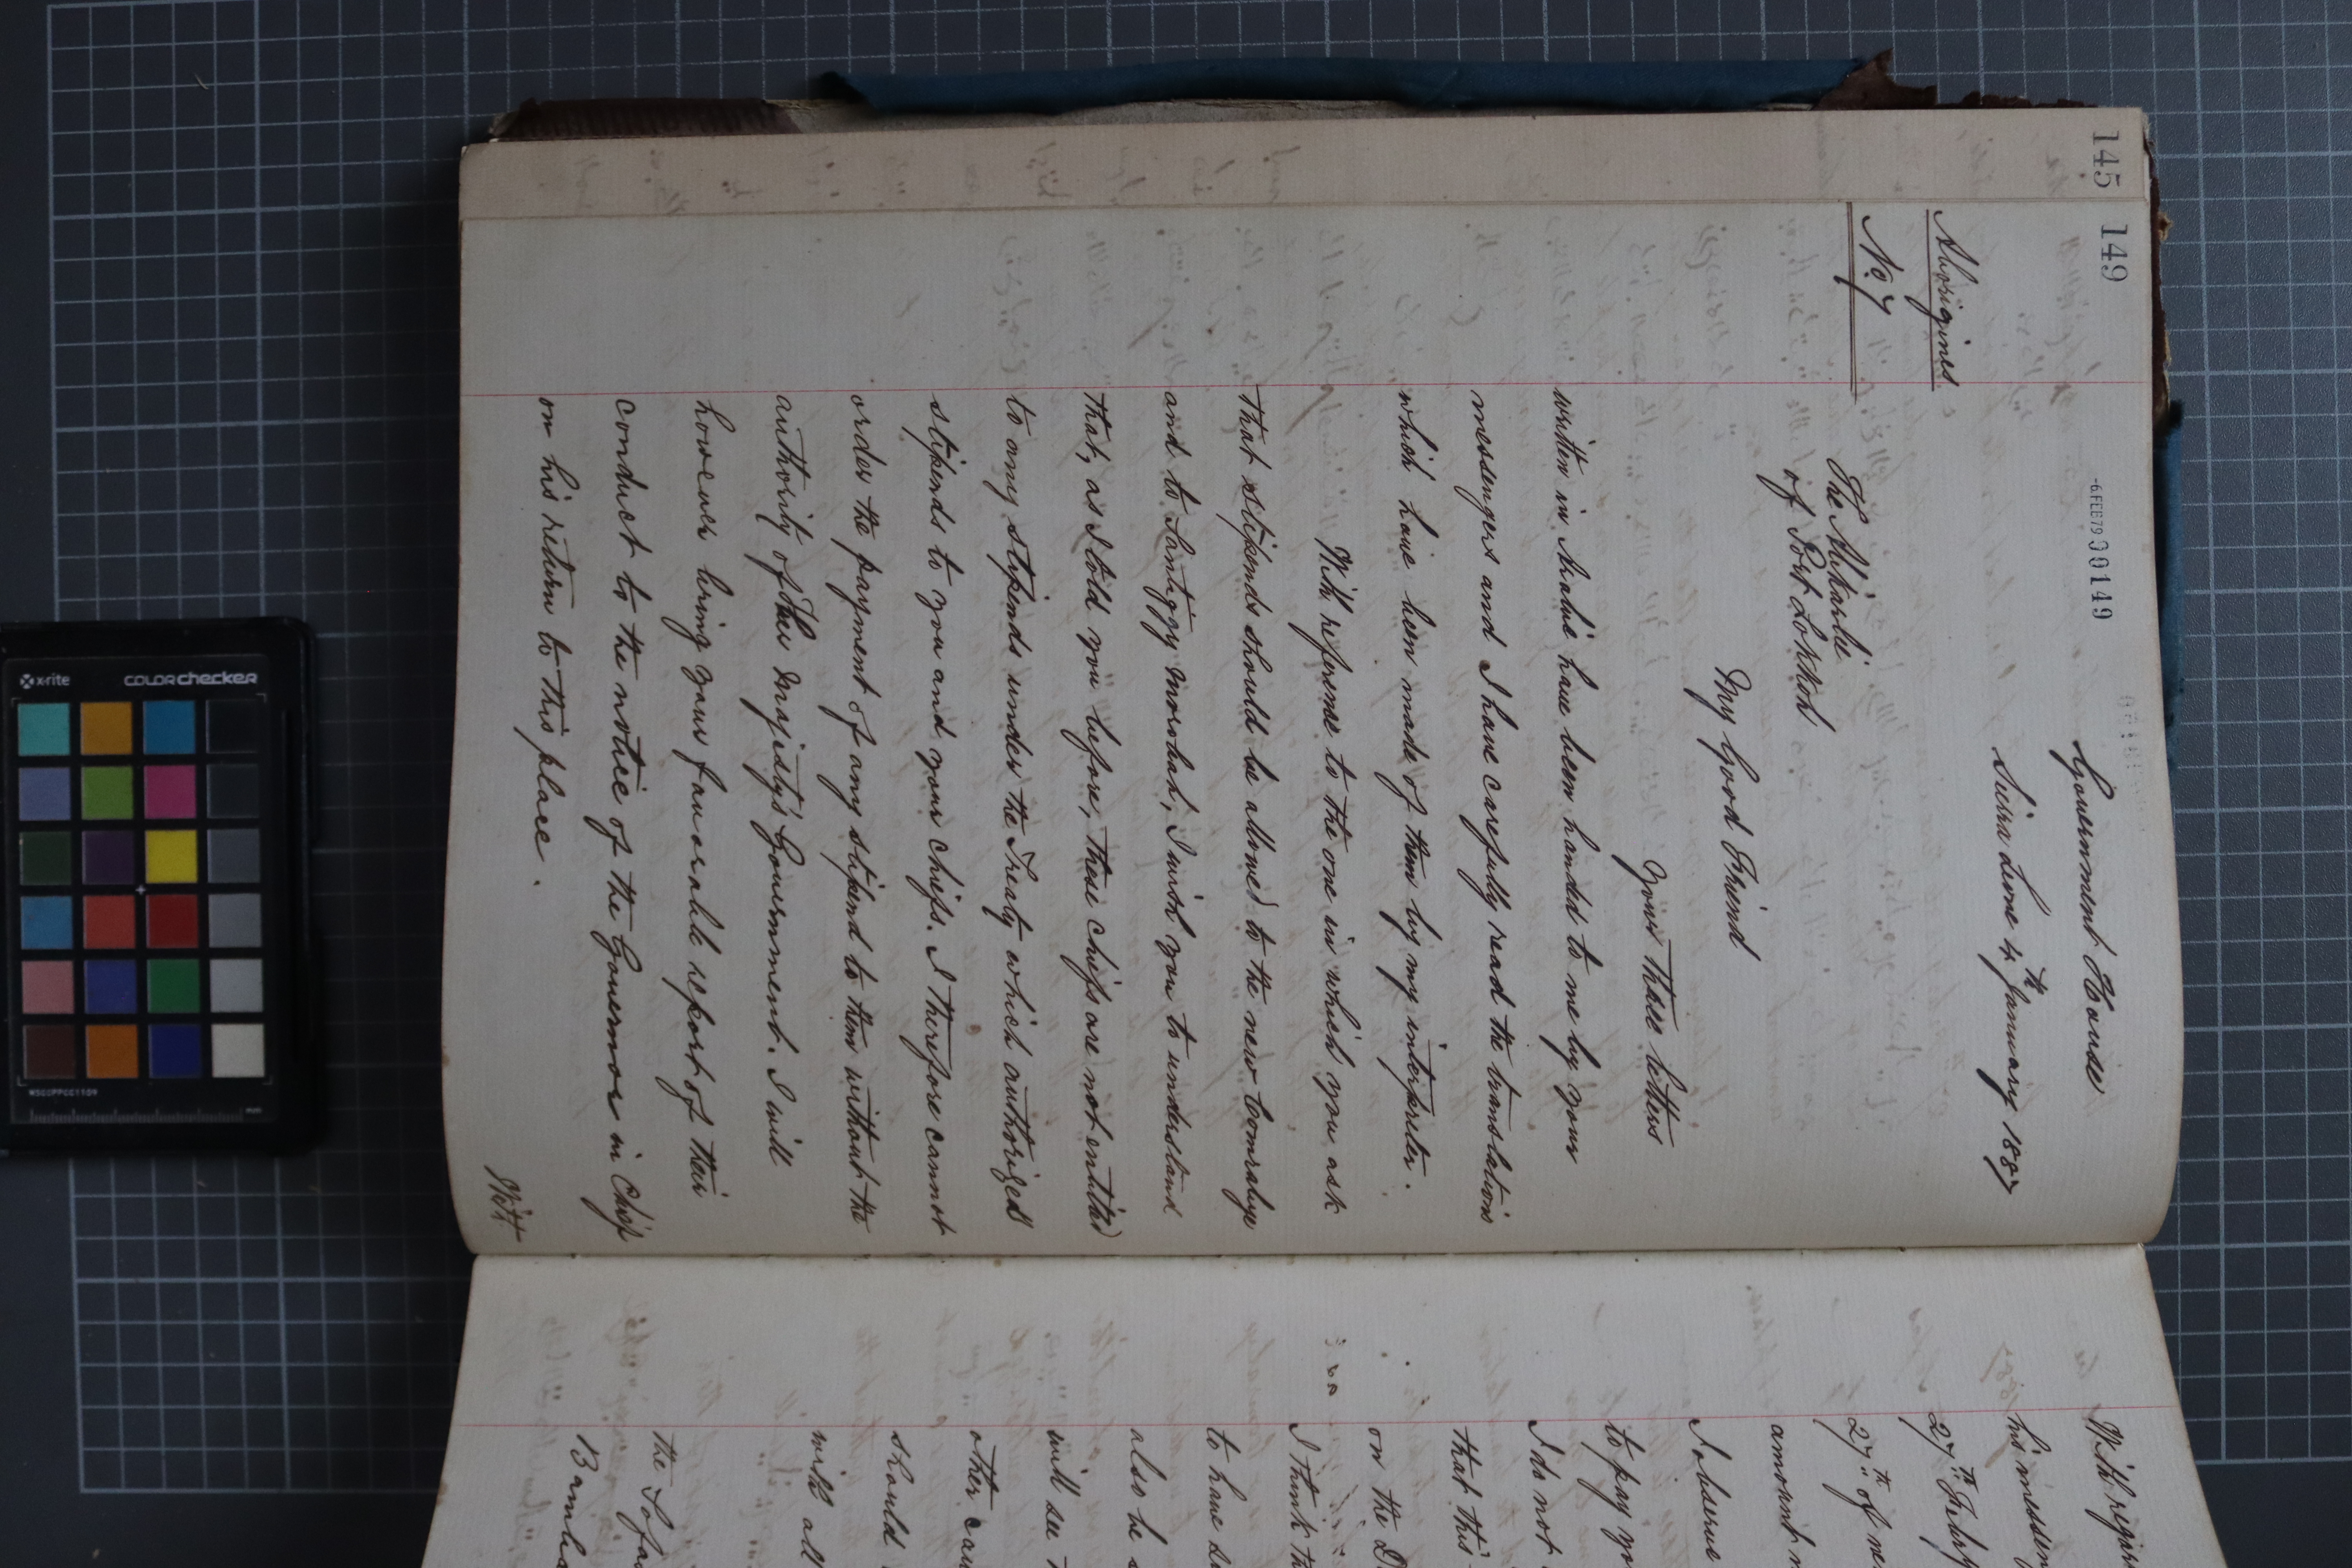 145
149
-6 FEB 79 000149
Aborigines
No 7
Government House
Sierra Leone 4th January 1887
The Alikarlie
of Port Lokkoh
My Good Friend
Your three letters
written in Arabic have been handed to me by your
messengers and I have carefully read the translations
which have been made of them by my interpreter.
With reference to the one in which you ask
that stipends should be allowed to the new
and to Santiggy Morobah, I wish you to understand
that, as I told you before, these chiefs are not entitled
to any stipends under the Treaty which authorized
stipends to you and your chiefs. I therefore cannot
order the payment of any stipend to them without the
authority of Her Majesty's Government. I will
however bring your favorable report of their
conduct to the notice of the Governor in Chief
on his return to this place.
With
With regar
his messen
27th Febry
27th of
amount
I observe
to pay yo
I do not
that this
on the D
I think th
to have
also be
will see
other cau
should
with all
the Sofa
Bamba
x-rite
colorchecker
MSCCPPCC1109
mm